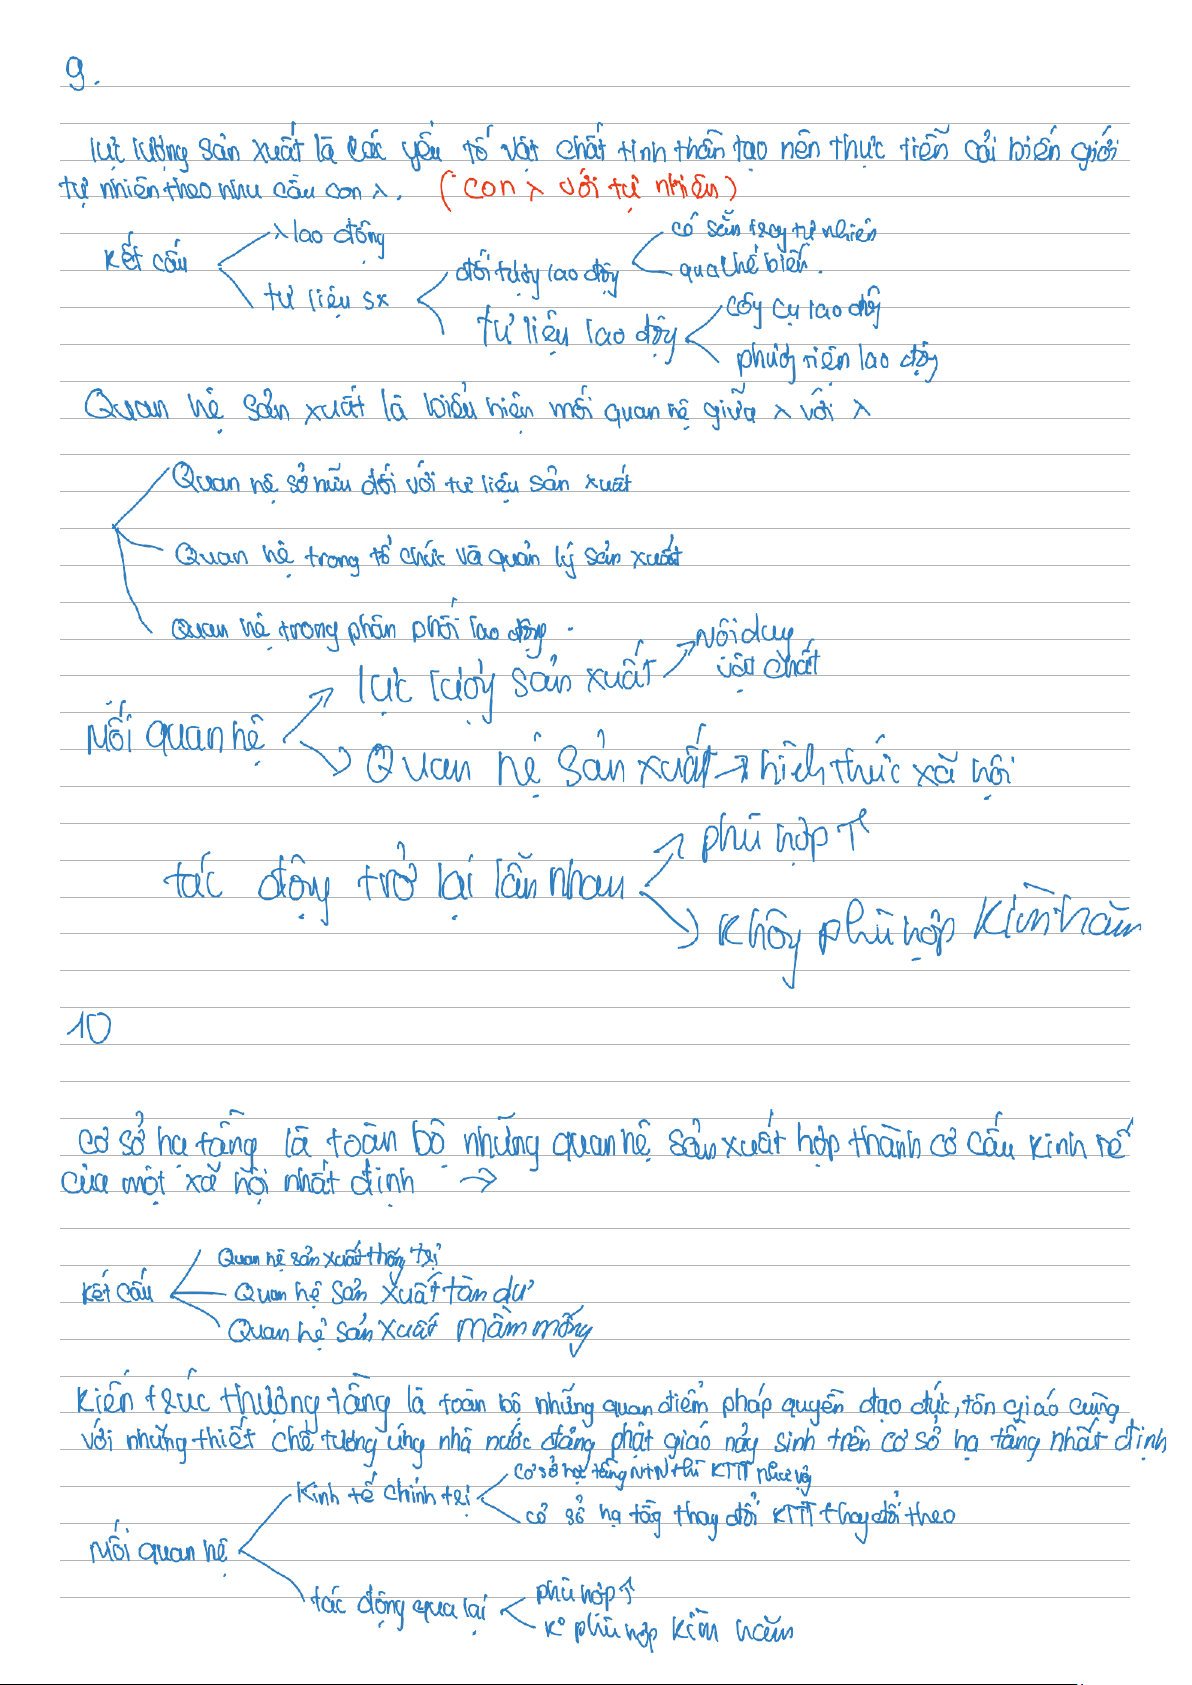 9.
lực lượng sản xuất là các yếu tố vật chất tinh thần tạo nên thực tiễn cải biến giới
tự nhiên theo nhu cầu con λ. (con λ với tự nhiên)
kết cấu
λ lao động
tư liệu sx
đối tượng lao động
có sẵn trog tự nhiên
qua chế biến.
tư liệu lao động
công cụ lao độg
phươg tiện lao độg
Quan hệ sản xuất là biểu hiện mối quan hệ giữa λ với λ
Quan hệ sở hữu đối với tư liệu sản xuất
Quan hệ trong tổ chức và quản lý sản xuất
Quan hệ trong phân phối lao động.
Mối quan hệ
lực lượg sản xuất → Nội dug
vật chất
Quan hệ sản xuất → hình thức xã hội
tác động trở lại lẫn nhau
phù hợp ↑
Khôg phù hợp kìm hãm
10
Cơ sở hạ tầng là toàn bộ những quan hệ sản xuất hợp thành cơ cấu kinh tế
của một xã hội nhất định →
kết cấu
Quan hệ sản xuất thống trị
Quan hệ sản xuất tàn dư
Quan hệ sản xuất mầm mống
Kiến trúc thượng tầng là toàn bộ những quan điểm pháp quyền đạo đức, tôn giáo cùng
với những thiết chế tương ứng nhà nước đảng phật giáo nảy sinh trên cơ sở hạ tầng nhất định
Mối quan hệ
Kinh tế chính trị
cơ sở hạ tầng NTN thì KTTT như vậy
cơ sở hạ tầg thay đổi KTTT thay đổi theo
tác động qua lại
phù hợp ↑
K° phù hợp kìm hãm